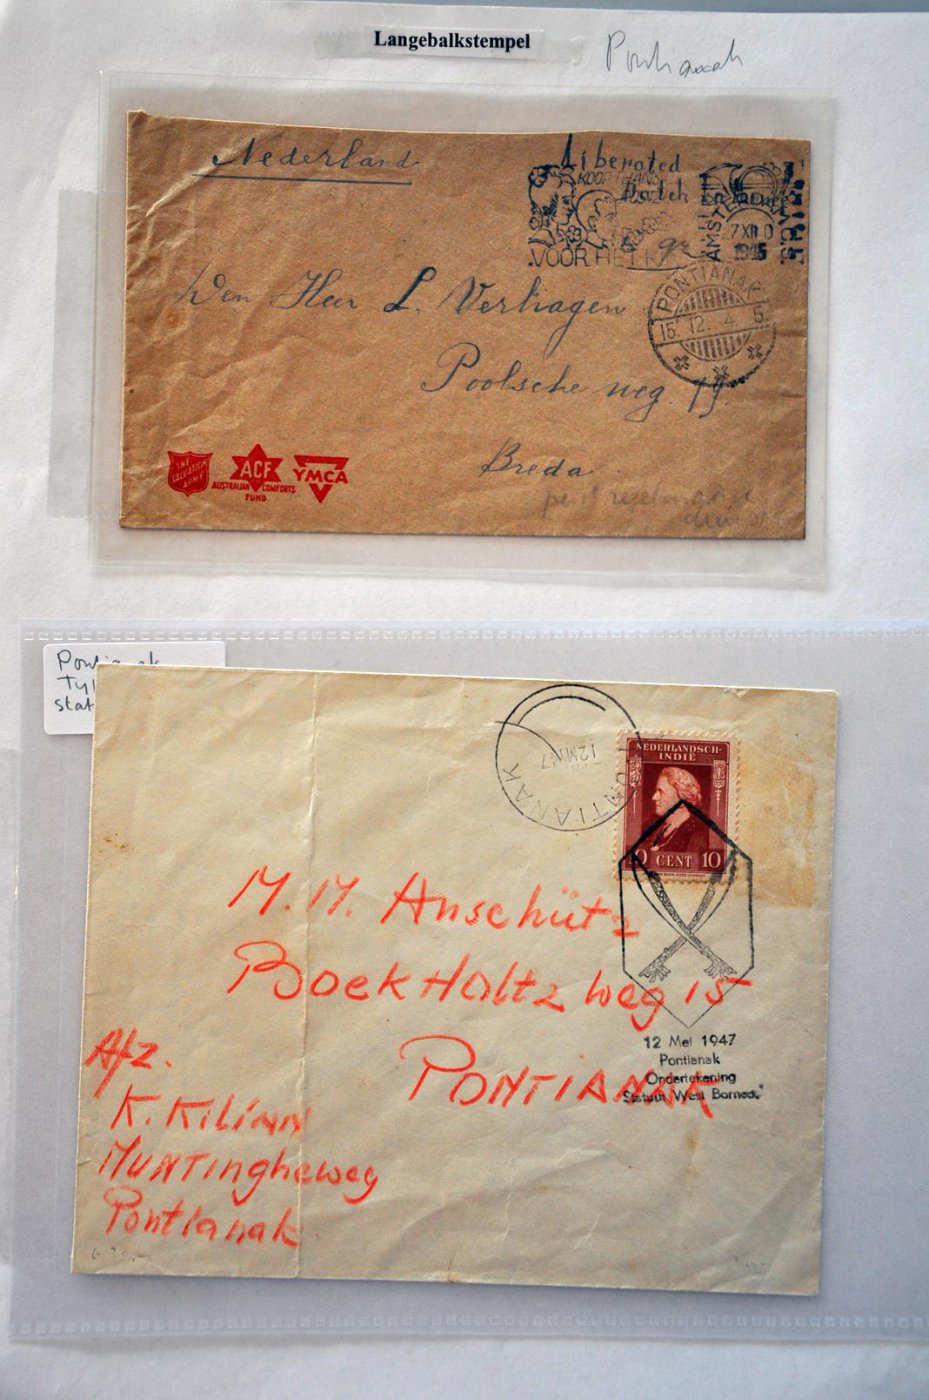 Langebalkstempel
Pontianak
Nederland
Liberated
Dutch
KOOP THANS
VOOR HET
AMSTERDAM
7 XII 0
1945
PONTIANAK
15. 12. 4 5.
Den Heer L. Verhagen
Poolsche weg. 79.
Breda
THE
SALVATION
ARMY
ACF
AUSTRALIAN COMFORTS
FUND
YMCA
Pontianak
Ty
stat
PONTIANAK
12 MEI 47
NEDERLANDSCH-
INDIË
10 CENT 10
M. M. Anschütz
BoekHoltz weg 15
PONTIANAK
Afz.
K. Kilian
Muntingheweg
Pontianak
12 Mei 1947
Pontianak
Ondertekening
Statuut West Borneo.